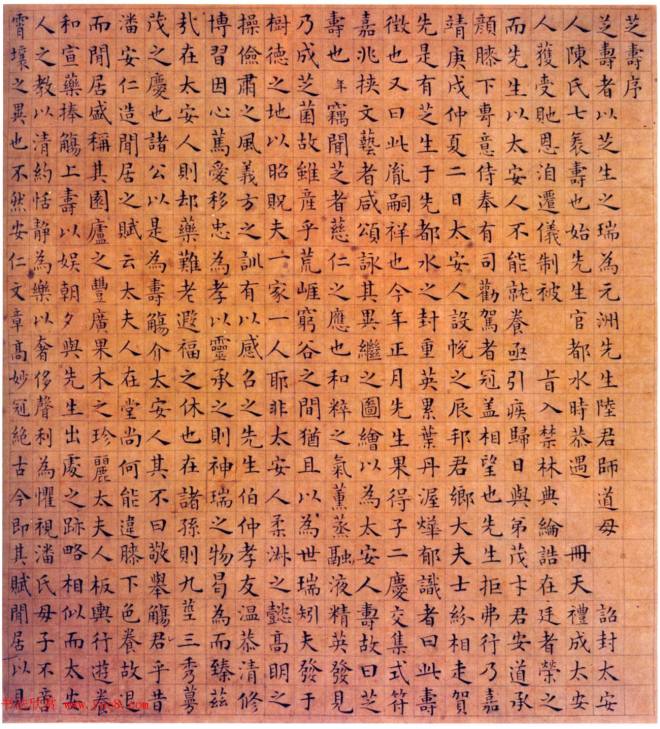 芝壽序
芝壽者以芝生之瑞為元洲先生陸君師道母　詔封太安
人陳氏七袠壽也始先生官都水時恭遇　冊天禮成太安
人獲受貤恩洎遷儀制被　旨入禁林典綸誥在廷者榮之
而先生以太安人不能就養亟引疾歸日與弟茂卞君安道承
顏膝下專意侍奉有司勸駕者冠盖相望也先生拒弗行乃嘉
靖庚戌仲夏二日太安人設帨之辰邦君鄉大夫士紛相走賀
先是有芝生于先都水之封重英累葉丹渥燁郁識者曰此壽
徵也又曰此胤嗣祥也今年正月先生果得子二慶交集式符
嘉兆挾文藝者咸頌詠其異繼之圖繪以為太安人壽故曰芝
壽也年竊聞芝者慈仁之應也和粹之氣薰蒸融液精英發見
乃成芝菌故雖産乎荒崕窮谷之間猶且以為世瑞矧夫發于
樹德之地以昭貺夫一家一人耶非太安人柔淋之懿高明之
操儉肅之風義方之訓有以感召之先生伯仲孝友温恭清修
博習因心篤愛移忠為孝以靈承之則神瑞之物曷為而臻茲
㢤在太安人則却藥難老遐福之休也在諸孫則九莖三秀蕚
茂之慶也諸公以是為壽觴介太安人其不曰敬舉觴君乎昔
潘安仁造閒居之賦云太夫人在堂尚何能違膝下色養故退
而閒居盛稱其園廬之豐廣果木之珍麗太夫人板輿行遊養
和宣藥捧觴上壽以娱朝夕與先生出處之跡略相似而太安
人之教以清約恬静為樂以奢侈聲利為懼視潘氏母子不啻
霄壤之異也不然安仁文章高妙冠絕古今即其賦閒居以見